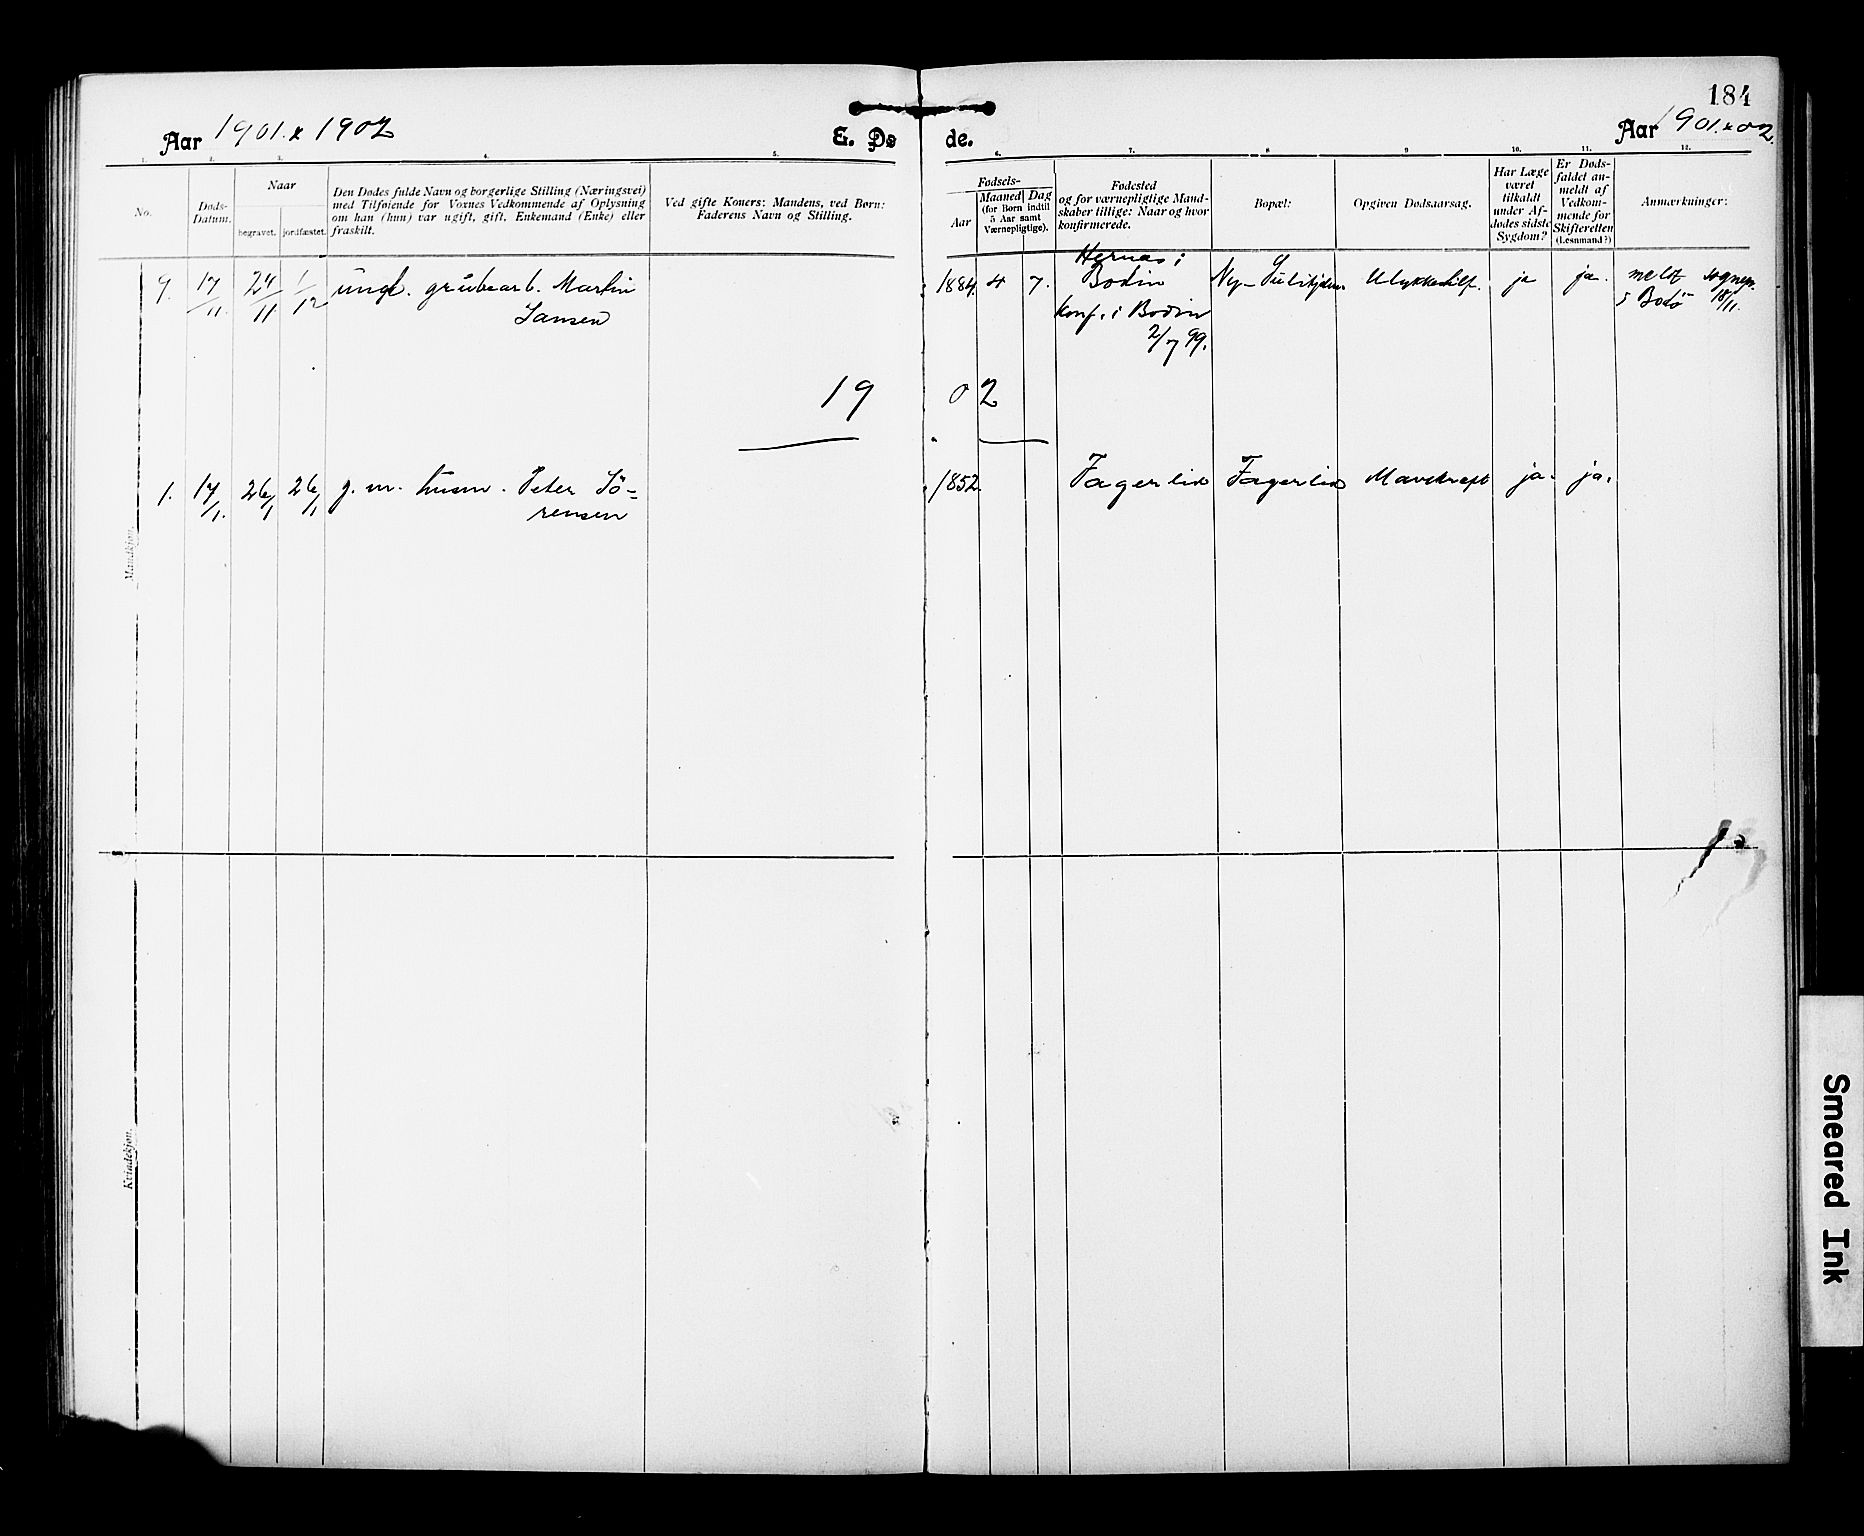 184
Aar 1901 & 1902
E. Døde.
Aar 1901 & 02.
1. 2. 3. 4. 5. 6. 7. 8 9 10. 11. 12.
No.
Døds-
Datum.
Naar
begravet. jordfæstet.
Den Dødes fulde Navn og borgerlige Stilling (Næringsvei)
med Tilføiende for Voxnes Vedkommende af Oplysning
om han (hun) var ugift, gift, Enkemand (Enke) eller
fraskilt.
Ved gifte Koner: Mandens, ved Børn:
Faderens Navn og Stilling.
Fødsels-
Aar
Maaned Dag
(for Børn indtil
5 Aar samt
Værnepligtige).
Fødested
og for værnepligtige Mand-
skaber tillige: Naar og hvor
konfirmerede.
Bopæl:
Opgiven Dødsaarsag.
Har Læge
været
tilkaldt
under Af-
dødes sidste
Sygdom?
Er Døds-
faldet an-
meldt af
Vedkom-
mende for
Skifteretten
(Lesnmand?)
Anmærkninger:
9. 17/11. 24/11 1/12 ungk. grubearb. Martin
Jansen
1884. 4 7.
Hernes i
Bodin
konf. i Bodin
2/7 99.
Ny-Sulitjelma
Ulykkestilf.
ja ja.
meldt sognepr.
i Bodø 18/11.
1902
1. 17/1. 26/1 26/1 g. m. husm. Peter Sö-
rensen
1852. Fagerlid Fagerlid Mavekræft ja. ja.
Mandkjøn.
Kvindekjøn.
Smeared Ink